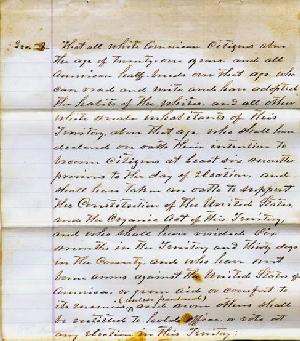 Sec 2. That all white American Citizens above
the age of twenty one years and all
American half-breeds over that age who
can read and write and have adopted
the habits of the whites, and all other
white male inhabitants of this
Territory, above that age who shall have
declared on oath their intention to
become Citizens at least six months
previous to the day of Election and
shall have taken an oath to support
the Constitution of the United States
and the Organic Act of this Territory
and who shall have resided six
months in the Territory and thirty days
in the County, and who have not
borne arms against the United States of
America, or given aid or comfort to
its enemies (unless pardoned) and none others shall
be entitled to hold office or vote at
any Election in this Territory: